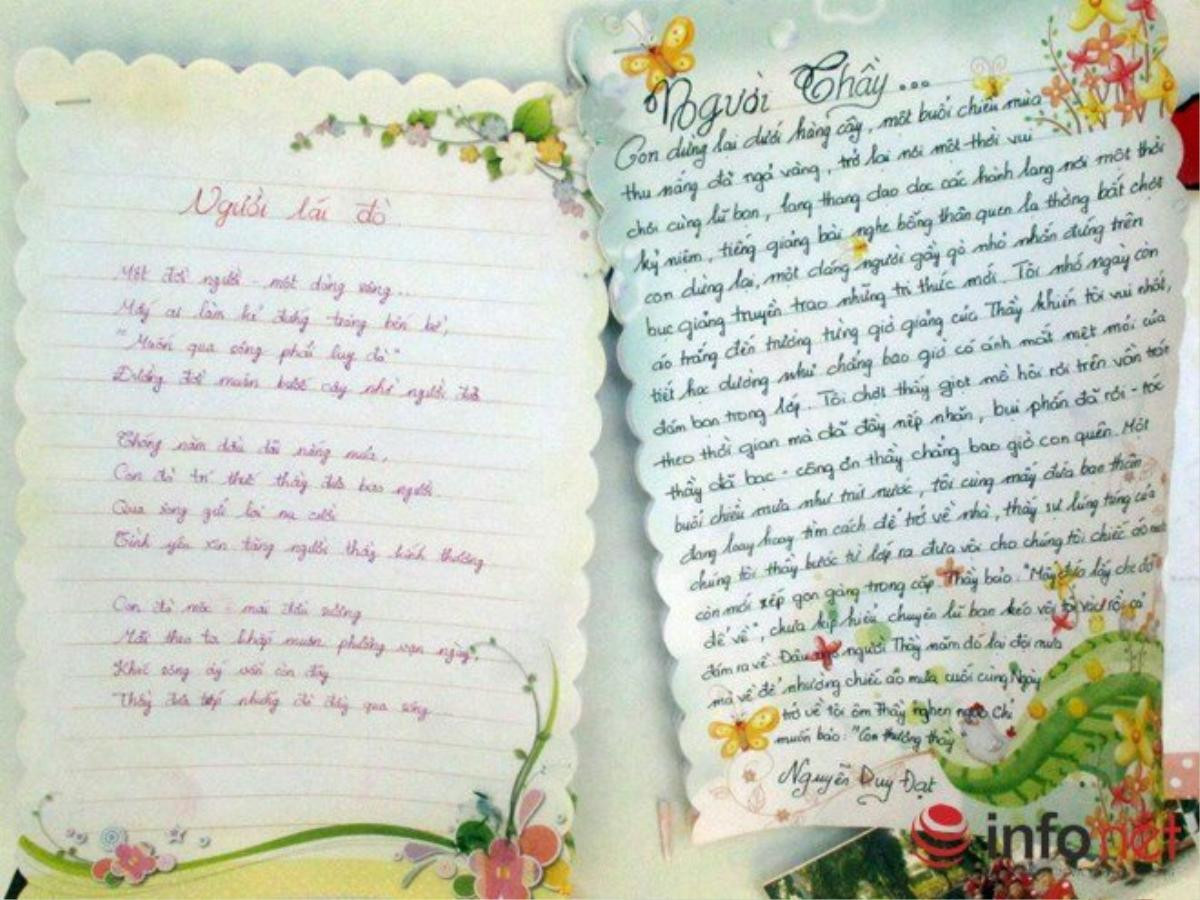 Người lái đò
Một đời người - một dòng sông...
Mấy ai làm kẻ đứng trông bến bờ,
"Muốn qua sông phải lụy đò"
Đường đời muôn bước cậy nhờ người đưa
Tháng năm dầu dãi nắng mưa,
Con đò trí thức thầy đưa bao người
Qua sông gửi lại nụ cười
Tình yêu xin tặng người thầy kính thương
Con đò mộc - mái đầu sương
Mãi theo ta khắp muôn phương vạn ngày,
Khúc sông ấy vẫn còn đây
Thầy đưa tiếp những đò đầy qua sông
Người Thầy...
Con dừng lại dưới hàng cây, một buổi chiều mùa
thu nắng đã ngả vàng, trở lại nơi một thời vui
chơi cùng lũ bạn, lang thang dao dọc các hành lang nơi một thời
kỷ niệm, tiếng giảng bài nghe bỗng thân quen lạ thường bất chợt
con dừng lại, một dáng người gầy gò nhỏ nhắn đứng trên
bục giảng truyền trao những tri thức mới. Tôi nhớ ngày còn
áo trắng đến trường từng giờ giảng của Thầy khiến tôi vui nhất,
tiết học dường như chẳng bao giờ có ánh mắt mệt mỏi của
đám bạn trong lớp. Tôi chợt thấy giọt mồ hôi rơi trên vầng trán
theo thời gian mà đã đầy nếp nhăn, bụi phấn đã rơi - tóc
thầy đã bạc - công ơn thầy chẳng bao giờ con quên. Một
buổi chiều mưa như trút nước, tôi cùng mấy đứa bạn thân
đang loay hoay tìm cách để trở về nhà, thấy sự lúng túng của
chúng tôi thầy bước từ lớp ra đưa vội cho chúng tôi chiếc áo mưa
còn mới xếp gọn gàng trong cặp. Thầy bảo: "Mấy đứa lấy che đỡ
để về", chưa kịp hiểu chuyện lũ bạn kéo vội tôi rồi cả
đám ra về. Đâu ngờ người Thầy năm đó lại đội mưa
mà về để nhường chiếc áo mưa cuối cùng. Ngày
trở về tôi ôm Thầy nghẹn ngào. Chỉ
muốn bảo: "Con thương thầy
Nguyễn Duy Đạt
infonet